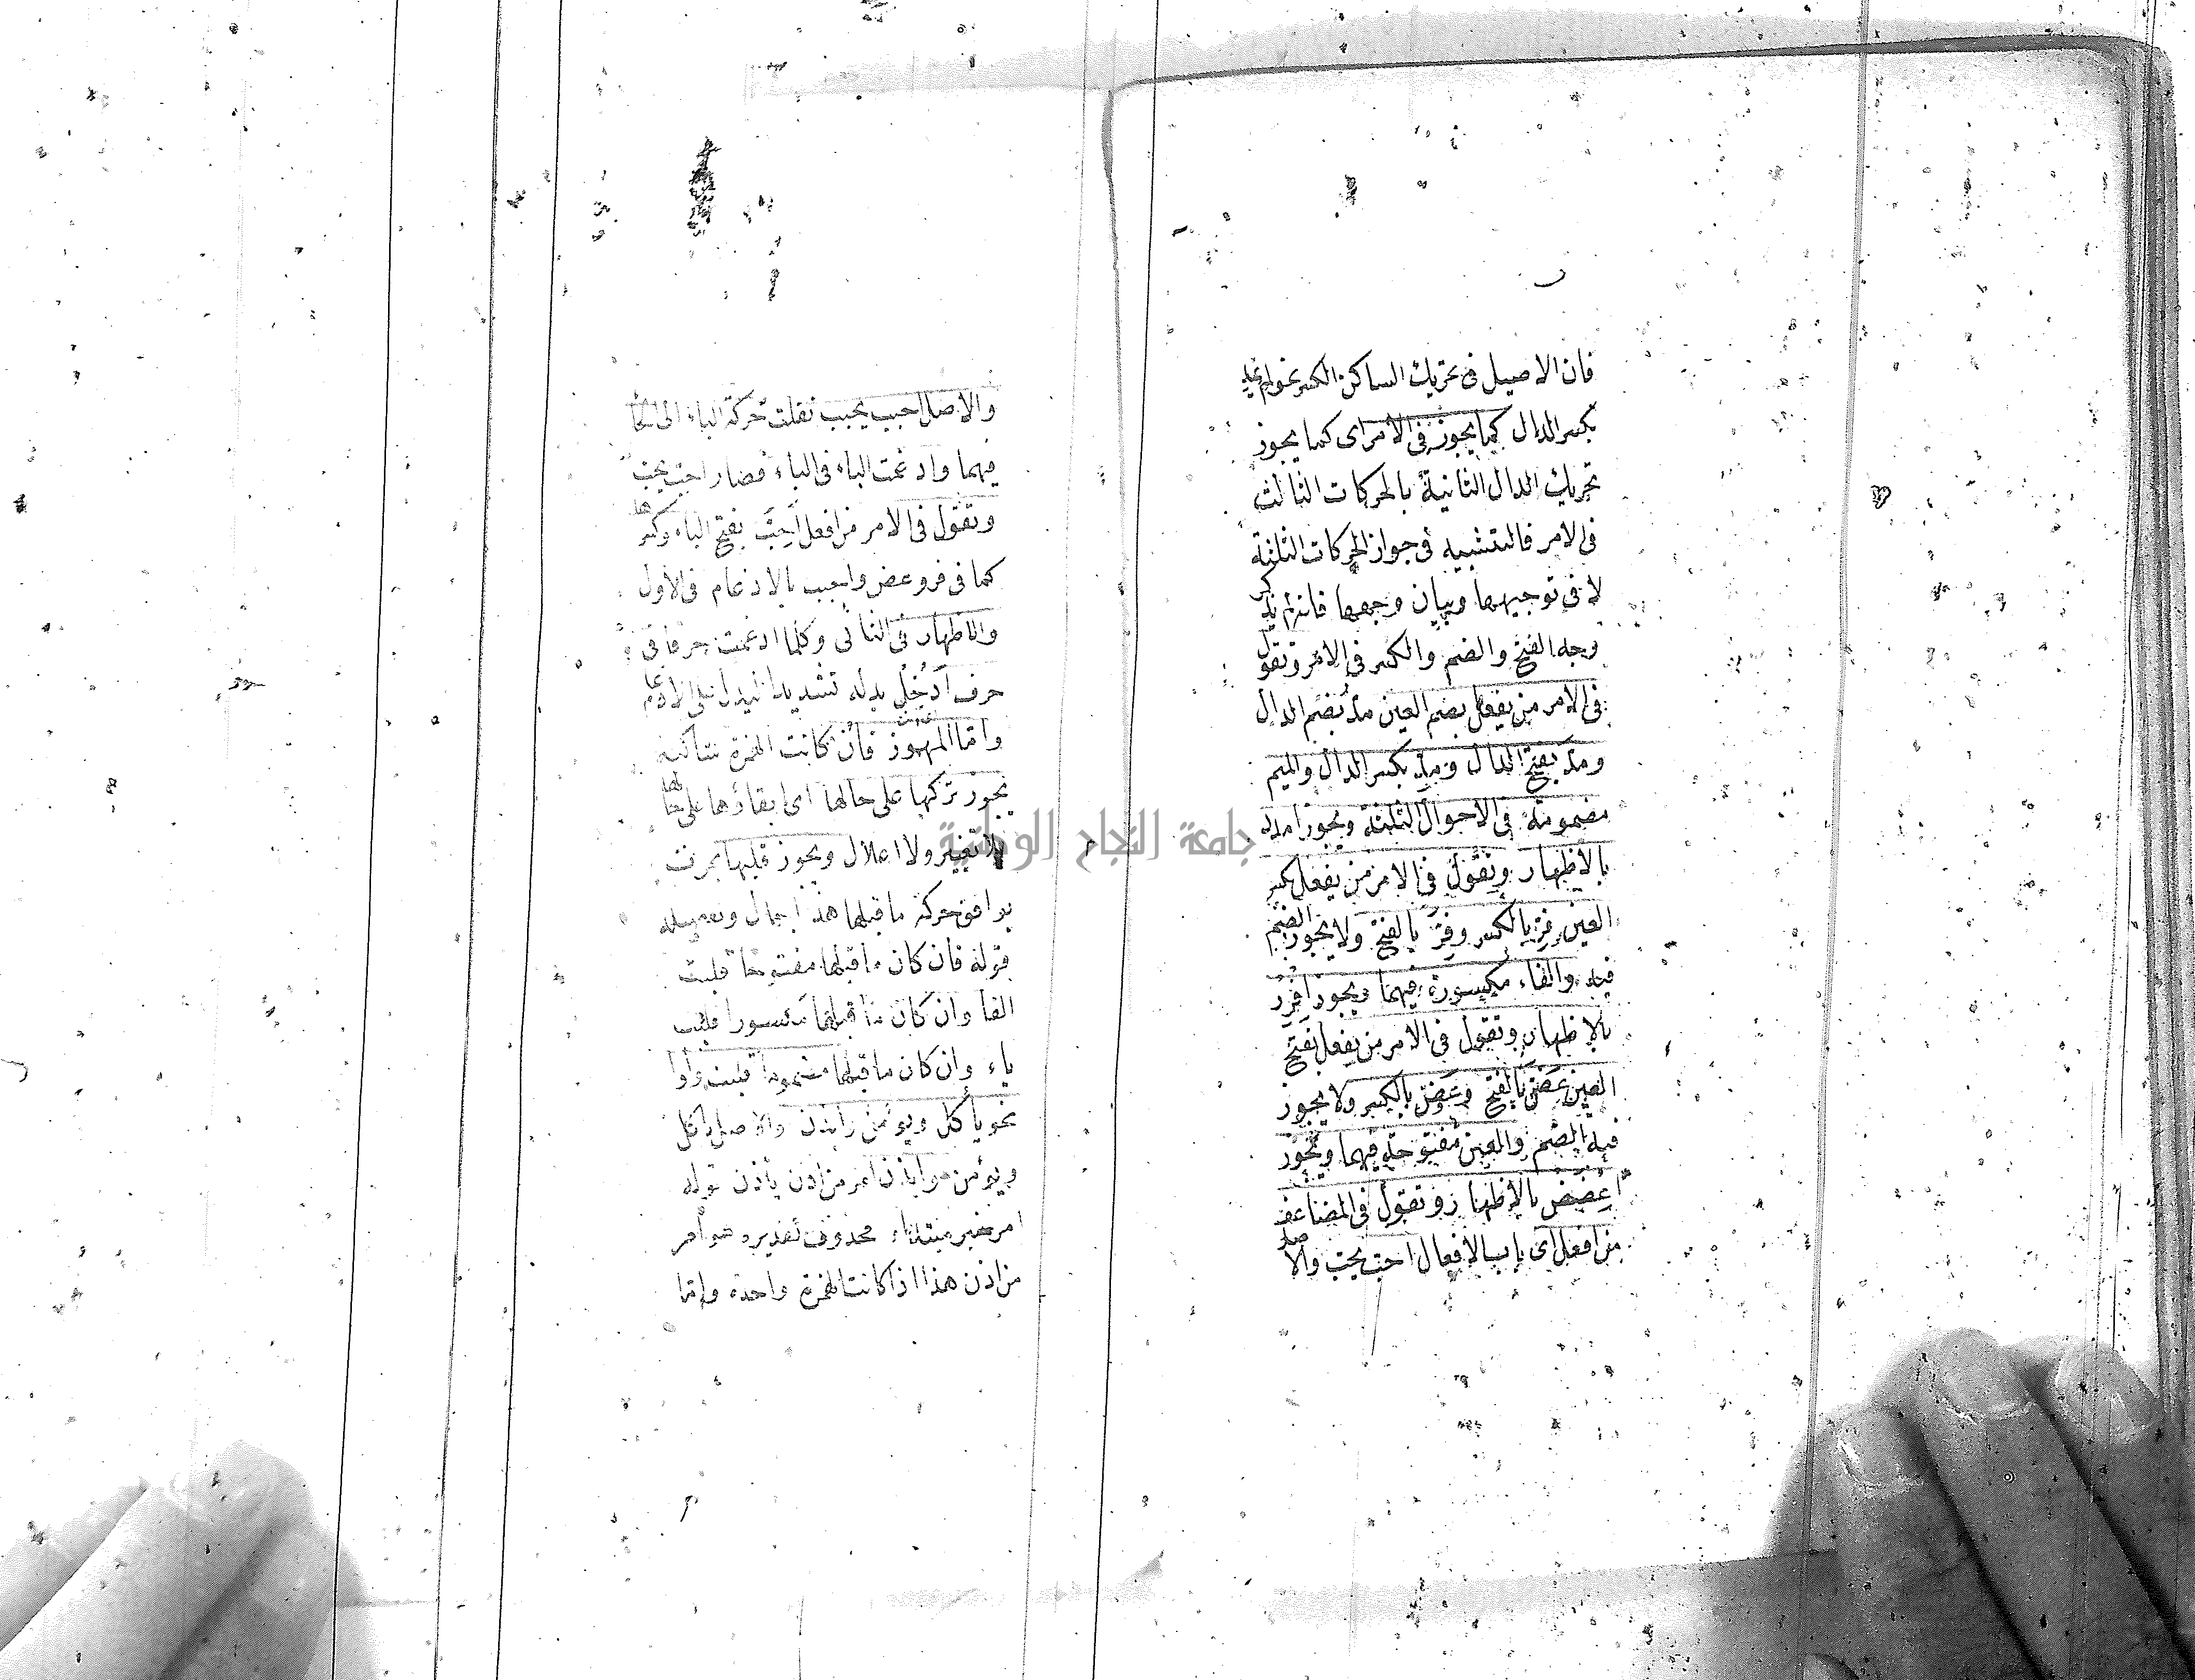 فان الاصل فى تحريك الساكن الكسر نحو لم يمد
بكسر الدال كما يجوز فى الامر اى كما يجوز
تحريك الدال الثانية بالحركات الثالث
فى الامر فالتشبيه فى جواز الحركات الثلثة
لا فى توجيهها وبيان وجهها فانه لم يذكر
وجه الفتح والضم والكسر فى الامر وتقول
فى الامر من يفعل بضم العين مدّ بضم الدال
ومدّ بفتح الدال ومدّ بكسر الدال والميم
مضمومة فى الاحوال الثلثة ويجوز امدد
بالاظهار وتقول فى الامر من يفعل بكسر
العين فرّ بالكسر وفرّ بالفتح ولا يجوز الضم
فيه والفاء مكسورة فيهما ويجوز افرر
بالاظهار وتقول فى الامر من يفعل بفتح
العين عضّ بالفتح وعضّ بالكسر ولا يجوز
فيه الضم والعين مفتوحة فيهما ويجوز
اعضض بالاظهار وتقول فى المضاعف
من افعل اى باب الافعال احب يحب والاصل
والاصل احبب يحبب نقلت حركة الباء الى الحا
فيهما وادغمت الباء فى الباء فصار احب يحب
وتقول فى الامر من افعل اَحِبَّ بفتح الباء وكسرها
كما فى فر وعض واحبب بالادغام فى الاول
والاظهار فى الثانى وكلما ادغمت حرفا فى
حرف اَدْخِلْ بدله تشديدا ليدل على الادغام
واما المهموز فان كانت الهمزة ساكنة
يجوز تركها على حالها اى ابقاؤها على حالها
بلا تغيير ولا اعلال ويجوز قلبها بحرف
يوافق حركة ما قبلها هذا اجمال وتفصيله
قوله فان كان ما قبلها مفتوحا قلبت
الفا وان كان ما قبلها مكسورا قلبت
ياء وان كان ما قبلها مضموما قلبت واوا
نحو يأكل ويؤمن وايذن والاصل يأكل
ويؤمن وايذن امر من اذن يأذن قوله
امر خبر مبتداء محذوف تقديره هو امر
من اذن هذا اذا كانت الهمزة واحدة واما
جامعة النجاح الوطنية